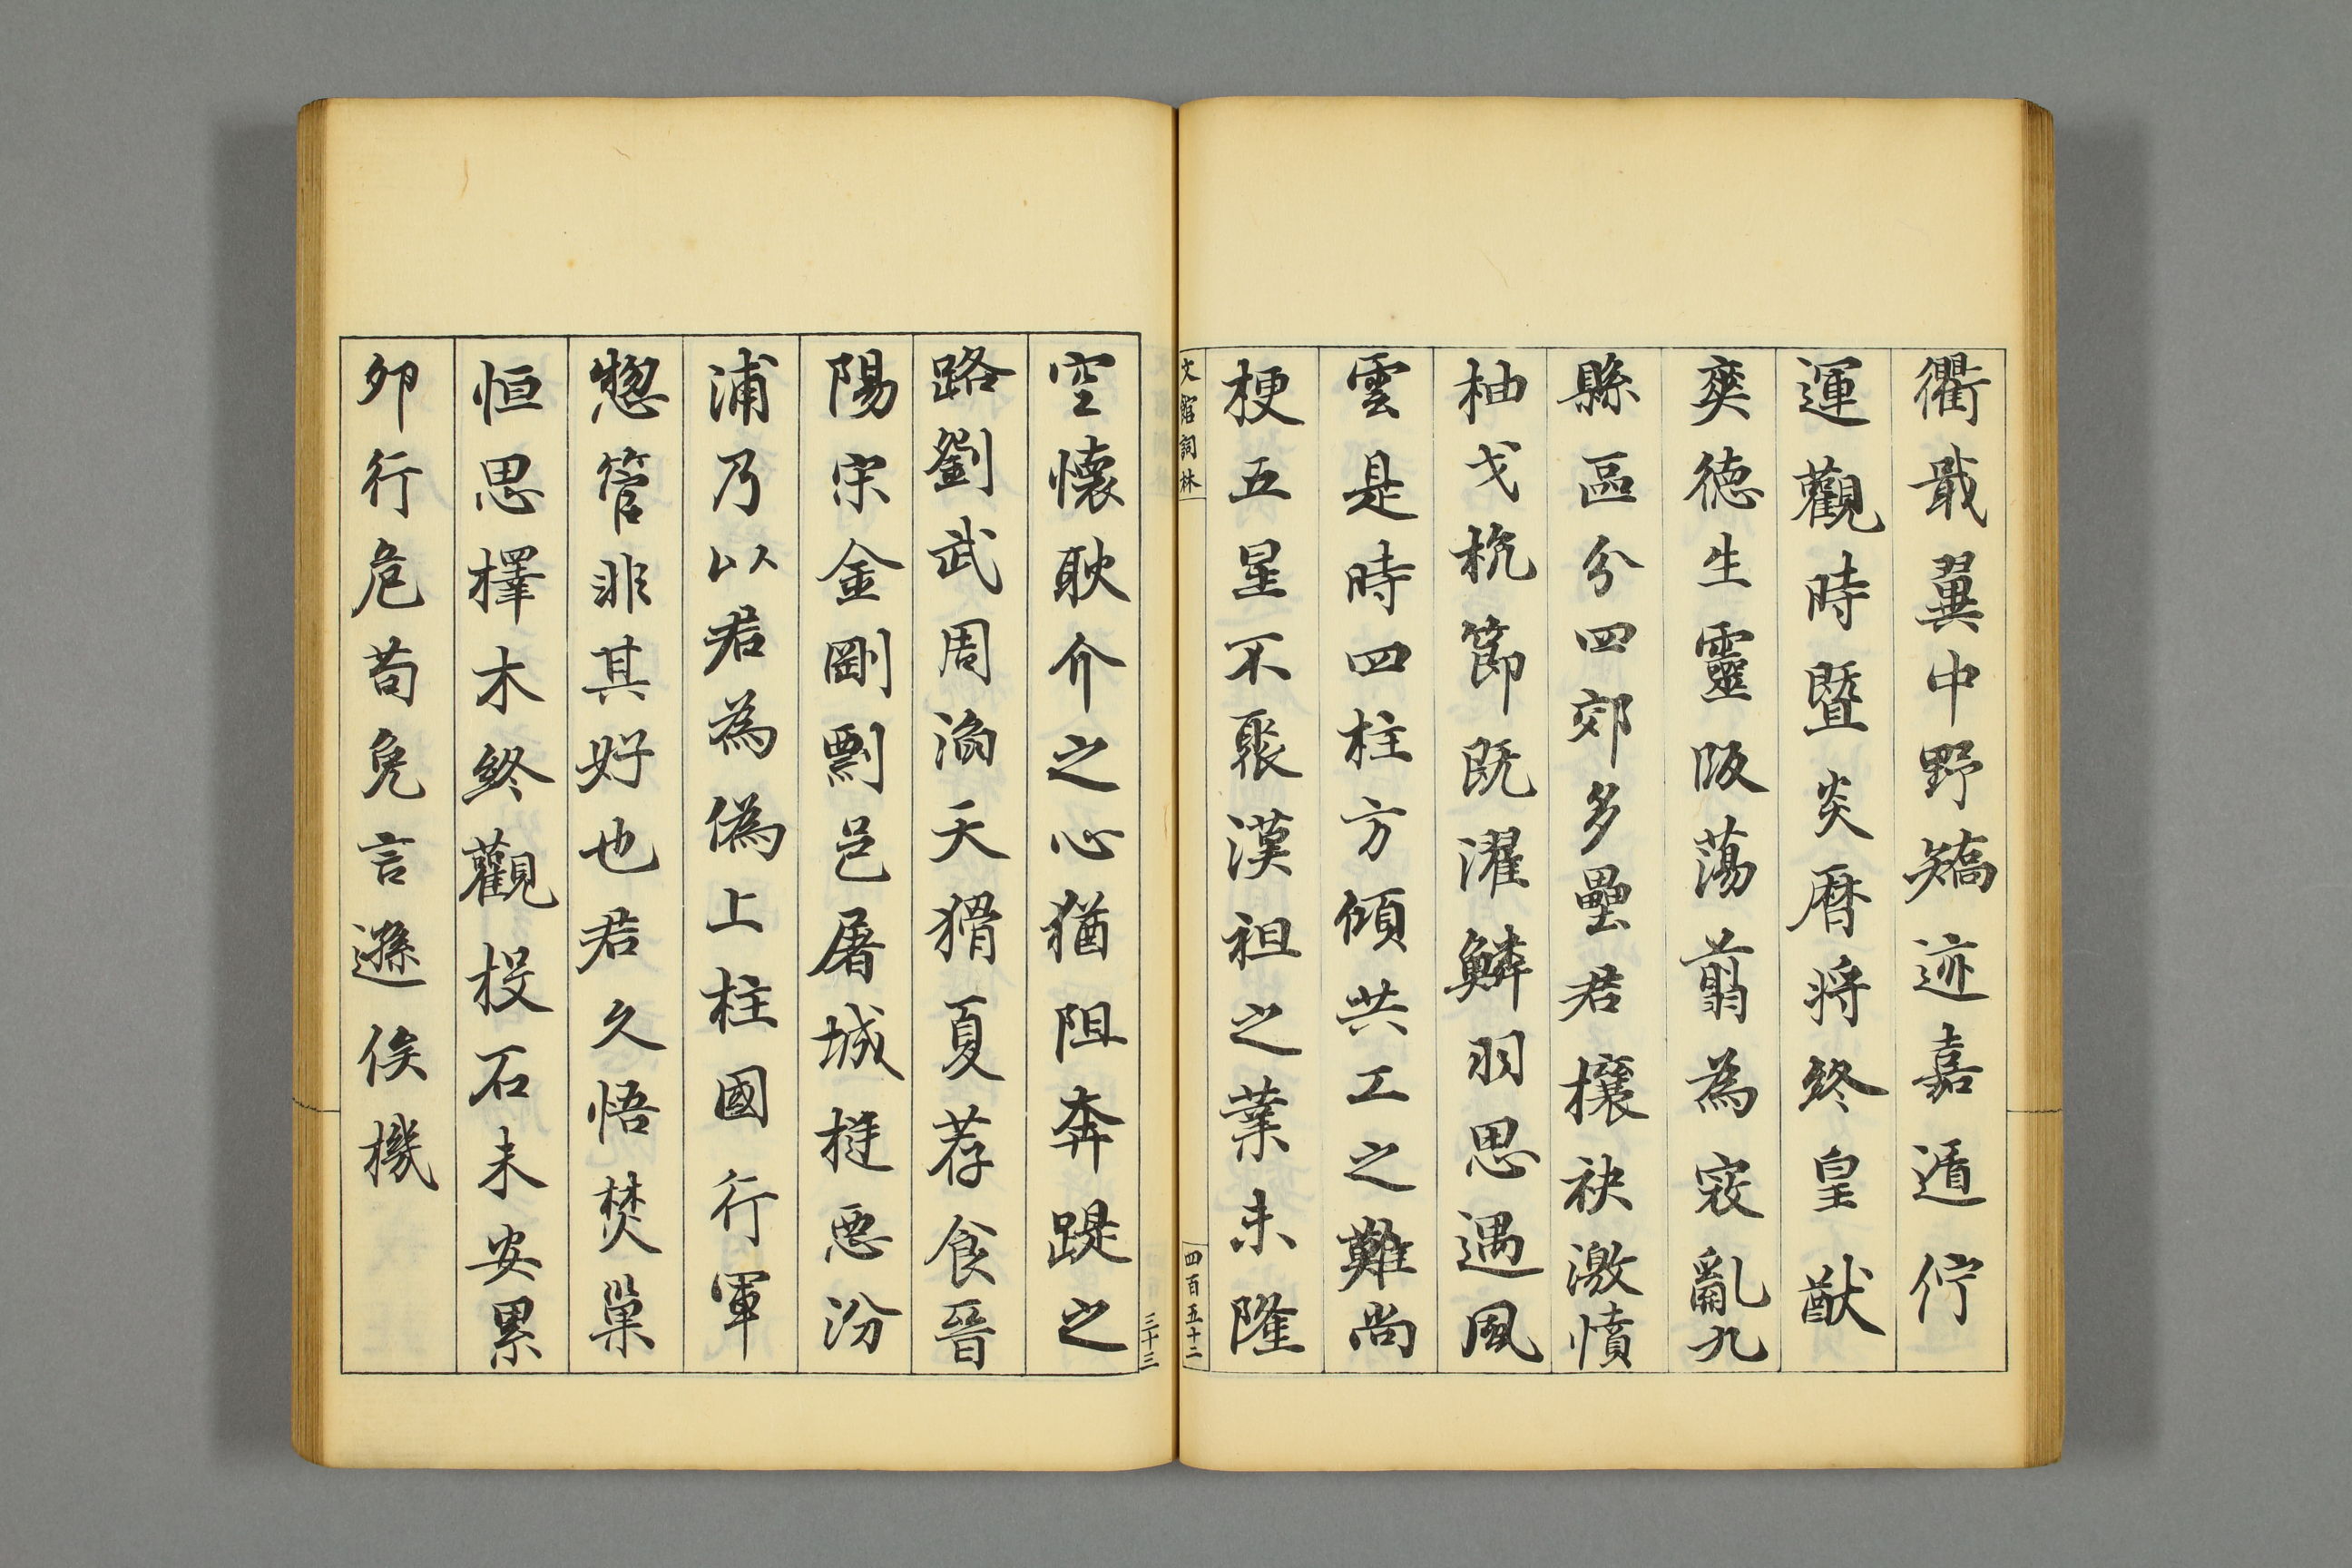 衢戢翼中野矯迹嘉遁佇
運觀時暨炎曆將終皇猷
奕德生靈版蕩翦為寇亂九
縣區分四郊多壘君攘袂激憤
柚戈杭節既濯鱗羽思遇風
雲是時四柱方傾共工之難尚
梗五星不聚漢祖之業未隆
文館詞林
四百五十二
三十三
空懷耿介之心猶阻奔踶之
路劉武周滔天猾夏荐食晉
陽宋金剛剽邑屠城挻惡汾
浦乃以君為偽上柱國行軍
惣管非其好也君久悟焚巢
恒思擇木終觀投石未安累
卵行危苟免言遜俟機